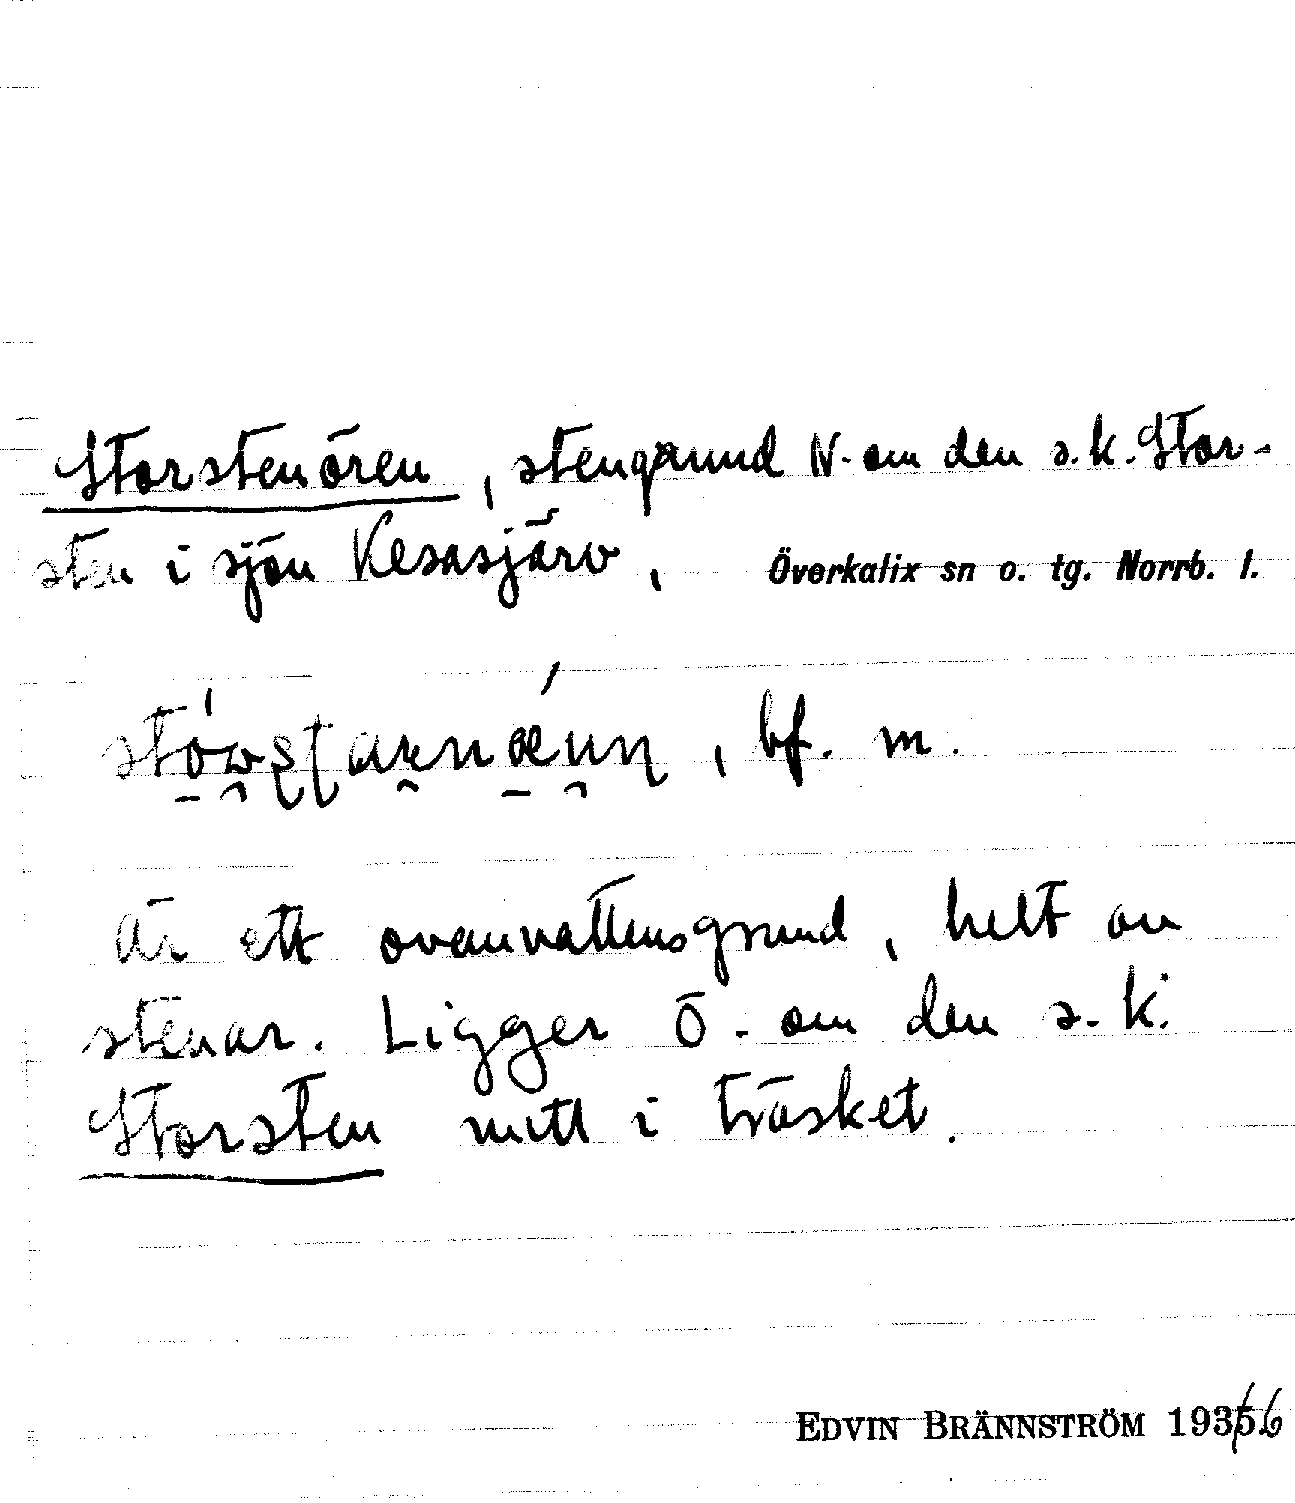 Storstenören, stengrund N. om den s.k. Stor-
sten i sjön Kesasjärv, Överkalix sn o. tg. Norrb. l.
, bf. m.
Är ett ovanvattensgrund, helt av
stenar. Ligger Ö. om den s.k.
Storsten mitt i träsket.
EDVIN BRÄNNSTRÖM 1936